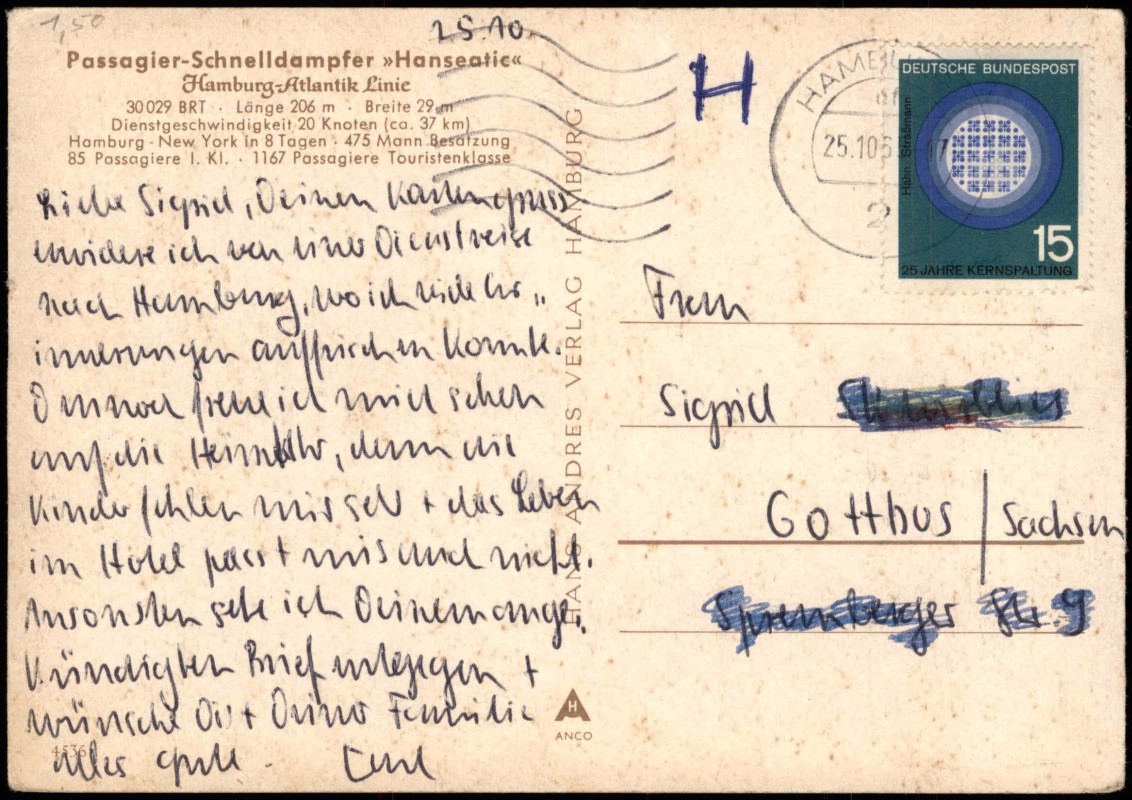 1,50
25.10.
Passagier-Schnelldampfer »Hanseatic«
Hamburg-Atlantik Linie
30029 BRT · Länge 206 m · Breite 29 m
Dienstgeschwindigkeit 20 Knoten (ca. 37 km)
Hamburg - New York in 8 Tagen · 475 Mann Besatzung
85 Passagiere I. Kl. · 1167 Passagiere Touristenklasse
Liebe Sigrid, Deinen Kartengruss
erwidere ich von einer Dienstreise
nach Hamburg, wo ich viele Er„
innerungen auffrischen konnte.
Dennoch freue ich mich schon
auf die Heimkehr, denn die
Kinder fehlen mir sehr + das Leben
im Hotel passt mir auch nicht.
Ansonsten sehe ich Deinem ange„
kündigten Brief entgegen +
wünsche Dir + Deiner Familie
alles gute.
HANS ANDRES VERLAG HAMBURG
ANCO
H
HAMBURG
25.10.6
17
2
DEUTSCHE BUNDESPOST
Hahn Straßmann
15
25 JAHRE KERNSPALTUNG
Frau
Sigrid
Cottbus / Sachsen
Spremberger Str. 9